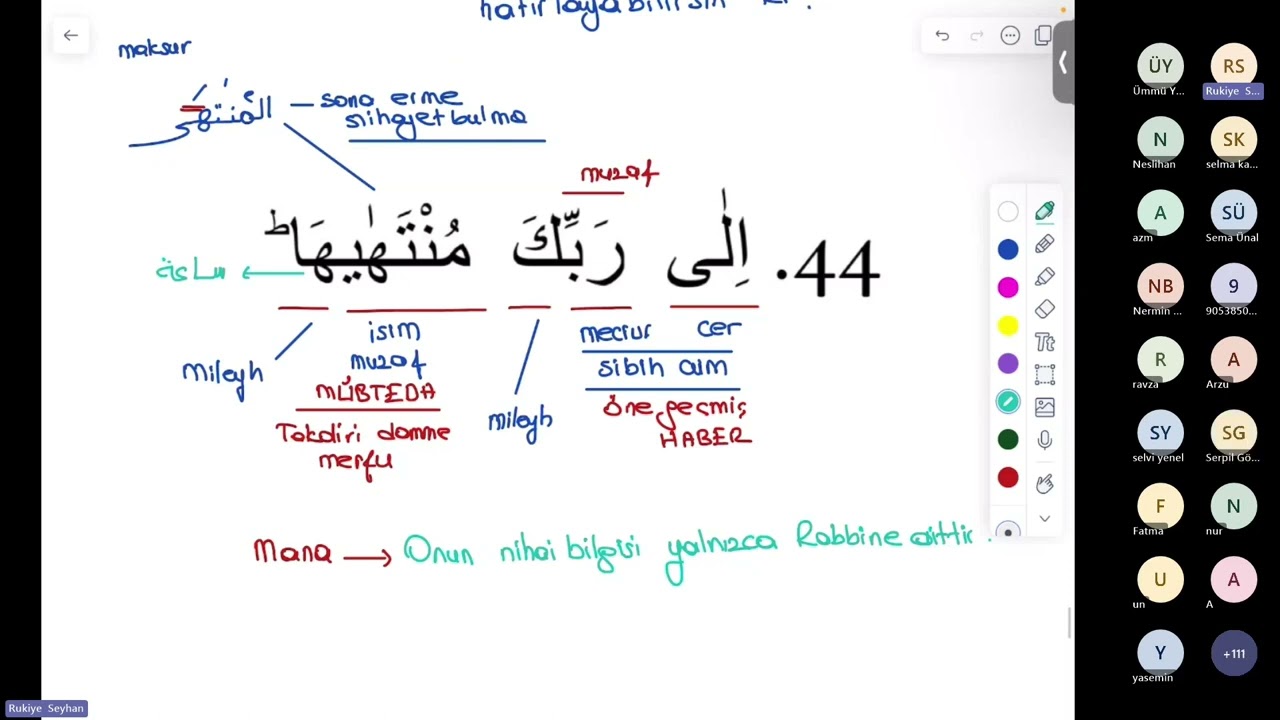 hatırlayabilirsin ki?
maksur
المُنتَهَى — sona erme
nihayet bulma
muzaf
44. اِلٰى رَبِّكَ مُنْتَهٰيهَاۜ
ساعة
isim
mecrur cer
mileyh
muzaf
sibih cüm
MÜBTEDA
mileyh
öne geçmiş
HABER
Takdiri damme
merfu
Mana → Onun nihai bilgisi yalnızca Rabbine aittir.
Tt
ÜY
Ümmü Y...
RS
Rukiye S...
N
Neslihan
SK
selma ka...
A
azm
SÜ
Sema Ünal
NB
Nermin ...
9
9053850...
R
ravza
A
Arzu
SY
selvi yenel
SG
Serpil Gö...
F
Fatma
N
nur
U
un
A
A
Y
yasemin
+111
Rukiye Seyhan